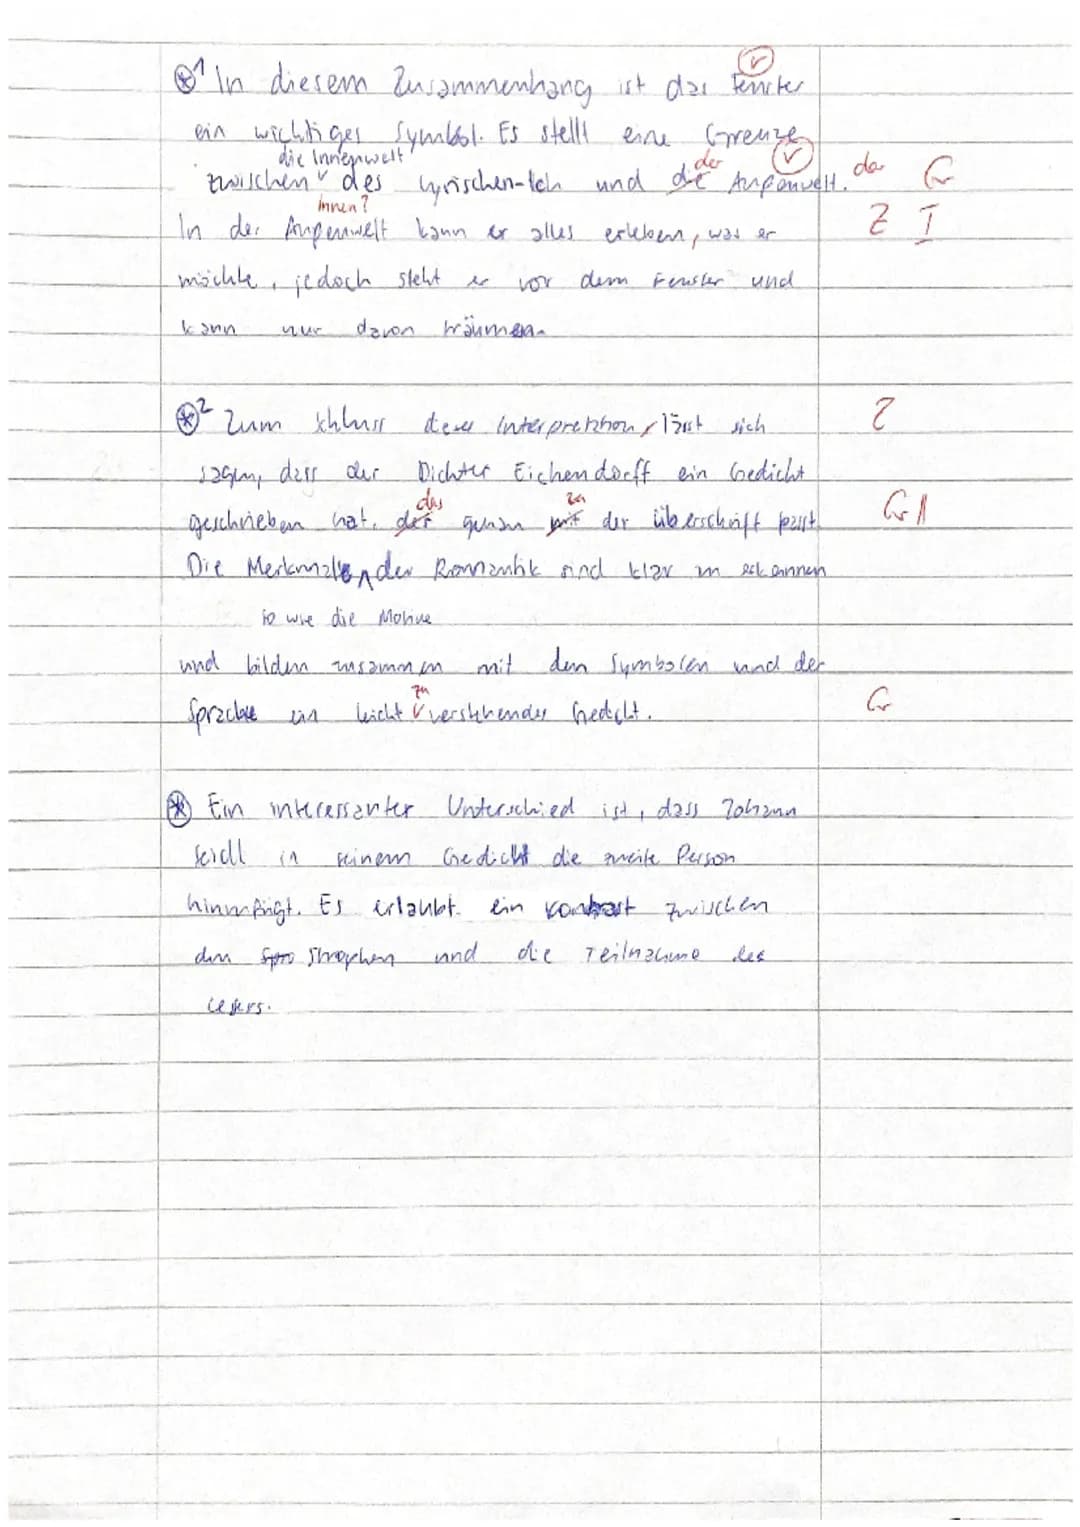 ⊛¹ In diesem Zusammenhang ist das Fenster
ein wichtiges Symbol. Es stellt eine Grenze
die Innenwelt der
zwischen des lyrischen-Ich und die Außenwelt. der Gr
Innen?
In der Außenwelt kann er alles erleben, was er Z I
möchte, jedoch steht er vor dem Fenster und
kann nur davon träumen.
⊛² Zum Schluss dieser Interpretation, lässt sich Z
sagen, dass der Dichter Eichendorff ein Gedicht
das zu
geschrieben hat, der genau mit der Überschrift passt. Gr
Die Merkmale der Romantik sind klar zu erkennen
so wie die Motive
und bilden zusammen mit den Symbolen und der
zu
Sprache ein leicht verstehendes Gedicht. Gr
⊛ Ein interessanter Unterschied ist, dass Johann
Seidl in seinem Gedicht die zweite Person
hinzufügt. Es erlaubt ein Kontrast zwischen
den Stophen und die Teilnahme des
Lesers.